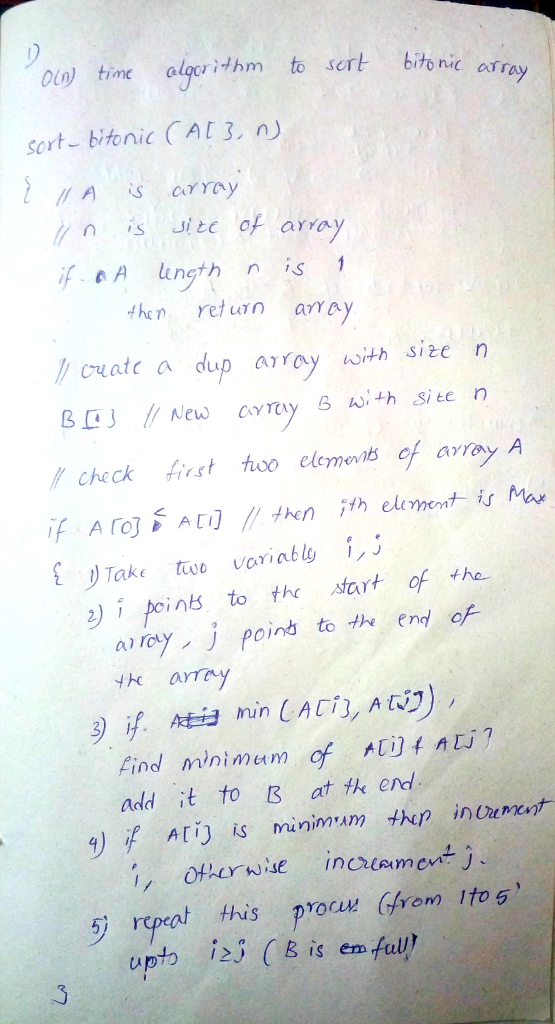 1)
O(n) time algorithm to sort bitonic array
sort-bitonic (A[], n)
{ // A is array
// n is size of array
if A length n is 1
then return array
// create a dup array with size n
B[] // New array B with size n
// check first two elements of array A
if A[0] ≤ A[1] // then ith element is Max
{ 1) Take two variables i, j
2) i points to the start of the
array, j points to the end of
the array
3) if min (A[i], A[j]),
find minimum of A[i] & A[j]
add it to B at the end.
4) if A[i] is minimum then increment
i, otherwise increament j.
5) repeat this process (from 1 to 5)
upto i≥j (B is full)
}